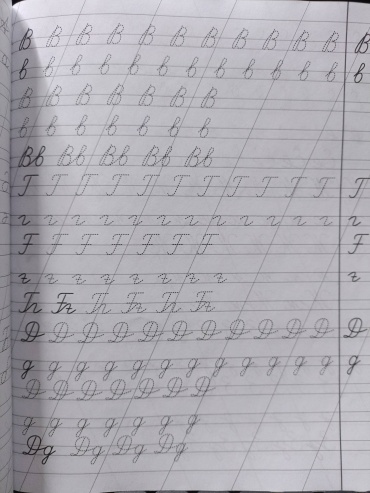 В В В В В В В В В В В В
в в в в в в в в в в в в в
В В В В В В В
в в в в в в в
Вв Вв Вв Вв Вв
Г Г Г Г Г Г Г Г Г Г Г Г
г г г г г г г г г г г г г
Ғ Ғ Ғ Ғ Ғ Ғ Ғ Ғ
ғ ғ ғ ғ ғ ғ ғ ғ ғ
Гг Ғғ Гг Ғғ Гг Ғғ
Д Д Д Д Д Д Д Д Д Д Д Д
д д д д д д д д д д д д д
Д Д Д Д Д Д Д
д д д д д д д
Дд Дд Дд Дд